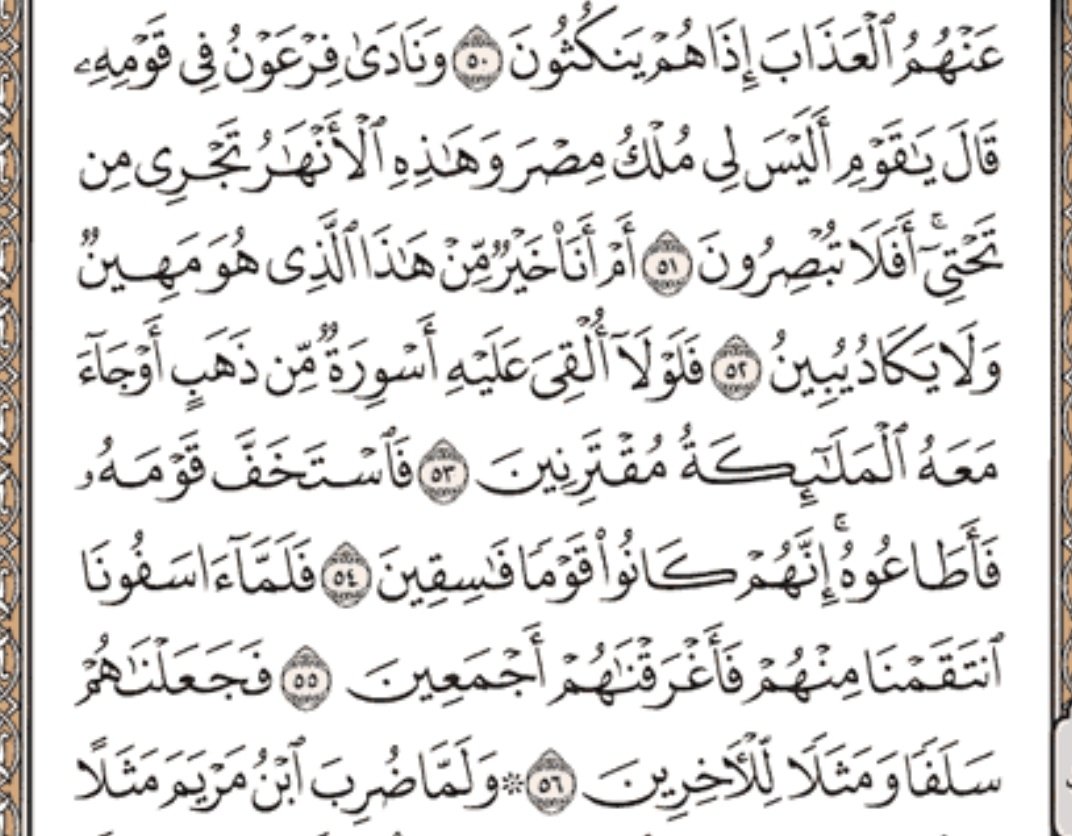 عَنْهُمُ ٱلْعَذَابَ إِذَا هُمْ يَنكُثُونَ ٥٠ وَنَادَىٰ فِرْعَوْنُ فِى قَوْمِهِۦ
قَالَ يَـٰقَوْمِ أَلَيْسَ لِى مُلْكُ مِصْرَ وَهَـٰذِهِ ٱلْأَنْهَـٰرُ تَجْرِى مِن
تَحْتِىٓ ۚ أَفَلَا تُبْصِرُونَ ٥١ أَمْ أَنَا۠ خَيْرٌ مِّنْ هَـٰذَا ٱلَّذِى هُوَ مَهِينٌ
وَلَا يَكَادُ يُبِينُ ٥٢ فَلَوْلَآ أُلْقِىَ عَلَيْهِ أَسْوِرَةٌ مِّن ذَهَبٍ أَوْ جَآءَ
مَعَهُ ٱلْمَلَـٰٓئِكَةُ مُقْتَرِنِينَ ٥٣ فَٱسْتَخَفَّ قَوْمَهُۥ
فَأَطَاعُوهُ ۚ إِنَّهُمْ كَانُوا۟ قَوْمًا فَـٰسِقِينَ ٥٤ فَلَمَّآ ءَاسَفُونَا
ٱنتَقَمْنَا مِنْهُمْ فَأَغْرَقْنَـٰهُمْ أَجْمَعِينَ ٥٥ فَجَعَلْنَـٰهُمْ
سَلَفًا وَمَثَلًا لِّلْـَٔاخِرِينَ ٥٦ ۞ وَلَمَّا ضُرِبَ ٱبْنُ مَرْيَمَ مَثَلًا